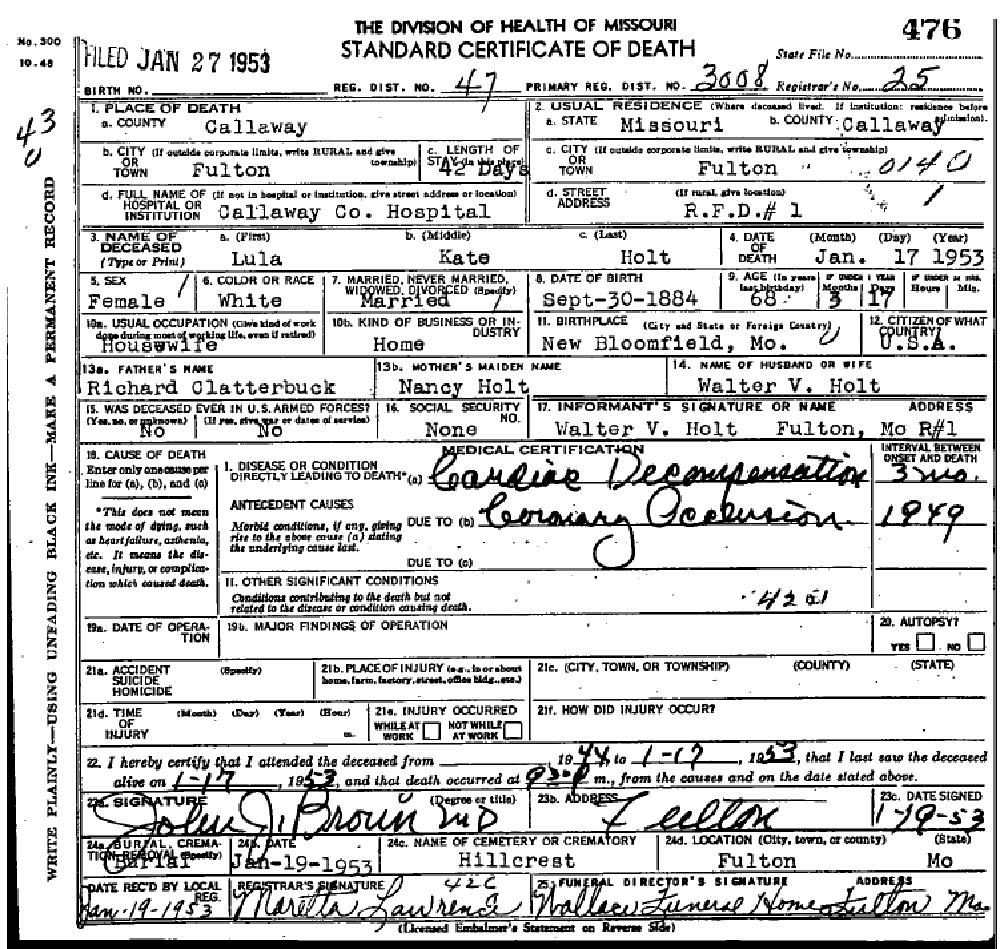 THE DIVISION OF HEALTH OF MISSOURI
476
No. 300
10-48
FILED JAN 27 1953
STANDARD CERTIFICATE OF DEATH
State File No.
BIRTH NO. REG. DIST. NO. 47 PRIMARY REG. DIST. NO. 3008 Registrar's No. 25
43
0
WRITE PLAINLY—USING UNFADING BLACK INK—MAKE A PERMANENT RECORD
1. PLACE OF DEATH
a. COUNTY Callaway
2. USUAL RESIDENCE (Where deceased lived. If institution: residence before admission).
a. STATE Missouri b. COUNTY Callaway
b. CITY OR TOWN (If outside corporate limits, write RURAL and give township) Fulton
c. LENGTH OF STAY (in this place) 42 Days
c. CITY OR TOWN (If outside corporate limits, write RURAL and give township) Fulton 0140
d. FULL NAME OF HOSPITAL OR INSTITUTION (If not in hospital or institution, give street address or location) Callaway Co. Hospital
d. STREET ADDRESS (If rural, give location) R.F.D.# 1 1
3. NAME OF DECEASED (Type or Print) a. (First) Lula b. (Middle) Kate c. (Last) Holt
4. DATE OF DEATH (Month) (Day) (Year) Jan. 17 1953
5. SEX Female 1
6. COLOR OR RACE White
7. MARRIED, NEVER MARRIED, WIDOWED, DIVORCED (Specify) Married 1
8. DATE OF BIRTH Sept-30-1884
9. AGE (In years last birthday) 68 IF UNDER 1 YEAR Months 3 Days 17 IF UNDER 24 HRS. Hours Min.
10a. USUAL OCCUPATION (Give kind of work done during most of working life, even if retired) Housewife
10b. KIND OF BUSINESS OR INDUSTRY Home
11. BIRTHPLACE (City and State or Foreign Country) New Bloomfield, Mo. 0
12. CITIZEN OF WHAT COUNTRY? U.S.A.
13a. FATHER'S NAME Richard Clatterbuck
13b. MOTHER'S MAIDEN NAME Nancy Holt
14. NAME OF HUSBAND OR WIFE Walter V. Holt
15. WAS DECEASED EVER IN U.S. ARMED FORCES? (Yes, no, or unknown) No (If yes, give war or dates of service) No
16. SOCIAL SECURITY NO. None
17. INFORMANT'S SIGNATURE OR NAME ADDRESS
Walter V. Holt Fulton, Mo R#1
18. CAUSE OF DEATH
Enter only one cause per line for (a), (b), and (c)
*This does not mean the mode of dying, such as heart failure, asthenia, etc. It means the disease, injury, or complication which caused death.
MEDICAL CERTIFICATION
INTERVAL BETWEEN ONSET AND DEATH
I. DISEASE OR CONDITION DIRECTLY LEADING TO DEATH* (a) Cardiac Decompensation 3 mo.
ANTECEDENT CAUSES
Morbid conditions, if any, giving rise to the above cause (a) stating the underlying cause last.
DUE TO (b) Coronary Occlusion 1949
DUE TO (c)
II. OTHER SIGNIFICANT CONDITIONS
Conditions contributing to the death but not related to the disease or condition causing death.
4201
19a. DATE OF OPERATION
19b. MAJOR FINDINGS OF OPERATION
20. AUTOPSY?
YES NO
21a. ACCIDENT SUICIDE HOMICIDE (Specify)
21b. PLACE OF INJURY (e.g., in or about home, farm, factory, street, office bldg., etc.)
21c. (CITY, TOWN, OR TOWNSHIP) (COUNTY) (STATE)
21d. TIME OF INJURY (Month) (Day) (Year) (Hour) m.
21e. INJURY OCCURRED
WHILE AT WORK NOT WHILE AT WORK
21f. HOW DID INJURY OCCUR?
22. I hereby certify that I attended the deceased from , 1944 to 1-17, 1953, that I last saw the deceased
alive on 1-17, 1953, and that death occurred at m., from the causes and on the date stated above.
23a. SIGNATURE (Degree or title) John J. Brown MD
23b. ADDRESS Fulton
23c. DATE SIGNED 1-19-53
24a. BURIAL, CREMATION, REMOVAL (Specify) Burial
24b. DATE Jan-19-1953
24c. NAME OF CEMETERY OR CREMATORY Hillcrest
24d. LOCATION (City, town, or county) (State) Fulton Mo
DATE REC'D BY LOCAL REG. Jan-19-1953
REGISTRAR'S SIGNATURE Maretta Lawrence 426
25. FUNERAL DIRECTOR'S SIGNATURE ADDRESS
Wallace Funeral Home Fulton Mo.
(Licensed Embalmer's Statement on Reverse Side)